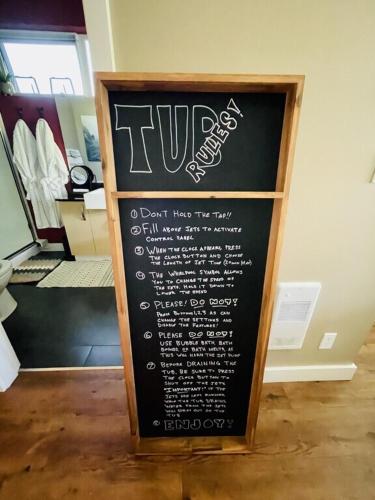 TUB
RULES!
① DON'T HOLD THE TAP!!
② Fill ABOVE JETS TO ACTIVATE
CONTROL PANEL
③ WHEN THE CLOCK APPEARS, PRESS
THE CLOCK BUTTON AND CHOOSE
THE LENGTH OF JET TIME
④ THE WHIRLPOOL SYMBOL ALLOWS
YOU TO CHANGE THE SPEED OF
THE JETS. HOLD IT DOWN TO
LOWER THE SPEED
⑤ PLEASE! DO NOT!
PRESS BUTTONS 1,2,3 AS CAN
CHANGE THE SETTINGS AND
DISARM THE FEATURES!
⑥ PLEASE DO NOT!
USE BUBBLE BATH, BATH
BOMBS OR BATH MELTS, AS
THIS WILL HARM THE JET PUMP
⑦ BEFORE DRAINING THE
TUB, BE SURE TO PRESS
THE CLOCK BUTTON TO
SHUT OFF THE JETS
*IMPORTANT!* IF THE
JETS ARE LEFT RUNNING
WHEN THE TUB DRAINS
WATER FROM THE JETS
WILL SPRAY OUT OF THE
TUB
⑧ ENJOY!